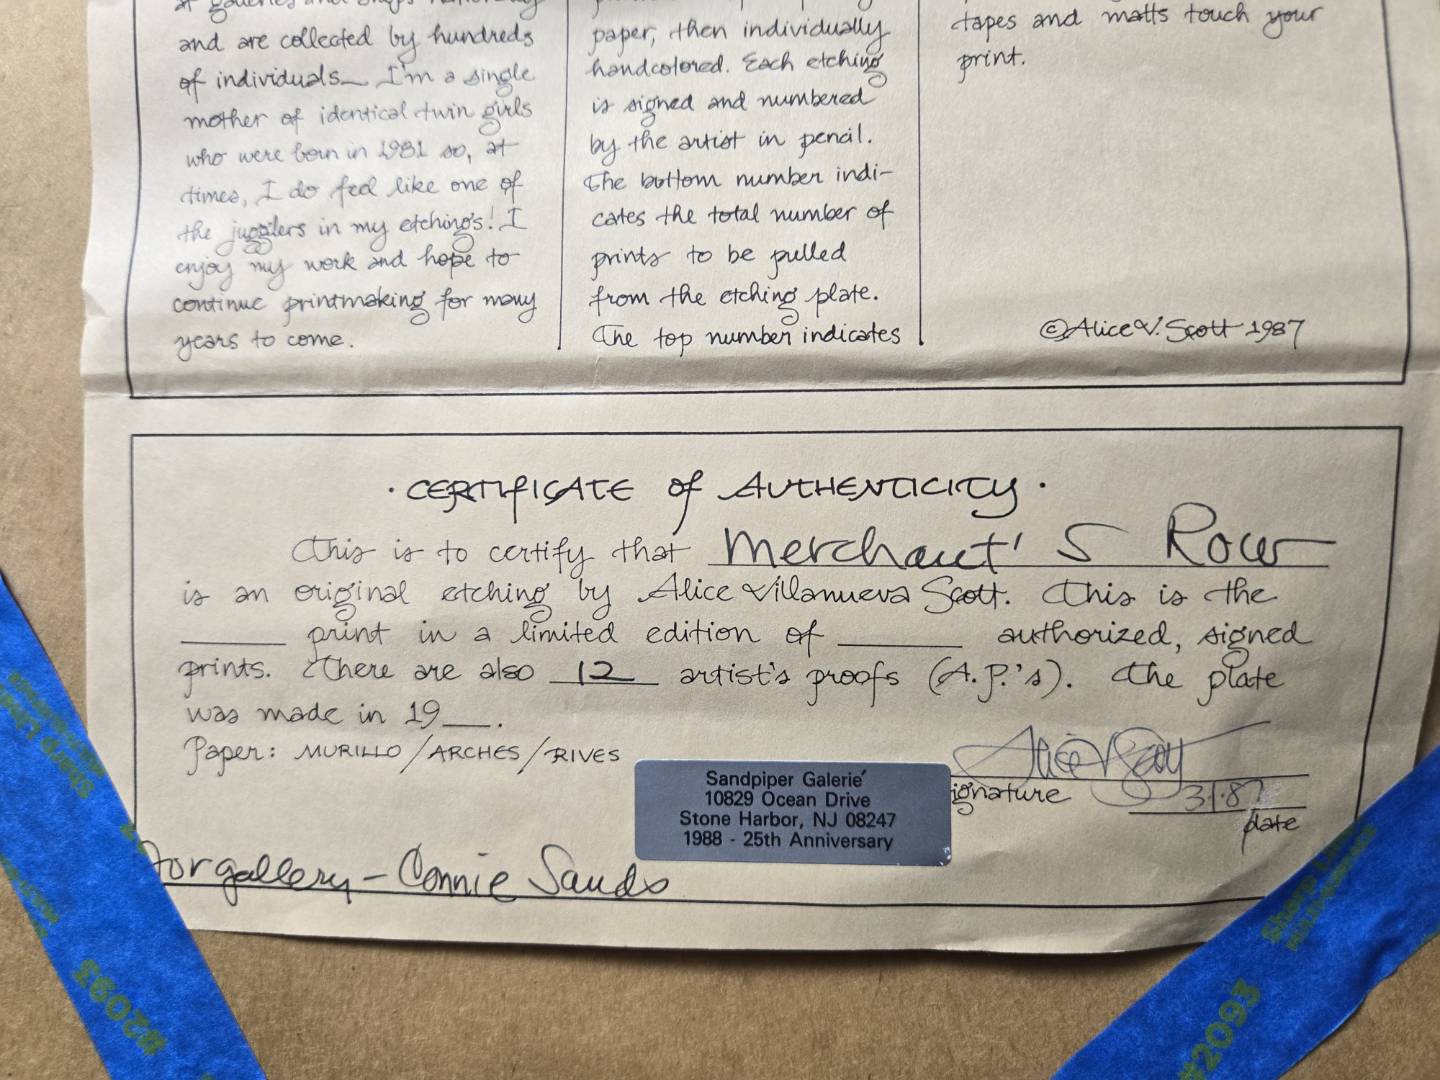 and are collected by hundreds
of individuals— I'm a single
mother of identical twin girls
who were born in 1981 so, at
times, I do feel like one of
the jugglers in my etchings! I
enjoy my work and hope to
continue printmaking for many
years to come.
paper, then individually
handcolored. Each etching
is signed and numbered
by the artist in pencil.
The bottom number indi-
cates the total number of
prints to be pulled
from the etching plate.
The top number indicates
tapes and matts touch your
print.
©Alice V. Scott 1987
· CERTIFICATE of AUTHENTICITY ·
This is to certify that Merchant's Row
is an original etching by Alice Villanueva Scott. This is the
______ print in a limited edition of ______ authorized, signed
prints. There are also 12 artist's proofs (A.P.'s). The plate
was made in 19__.
Paper: MURILLO/ARCHES/RIVES
Alice V Scott
ignature
date
Sandpiper Galerie´
10829 Ocean Drive
Stone Harbor, NJ 08247
1988 - 25th Anniversary
for gallery – Connie Sands
#2093
#2093